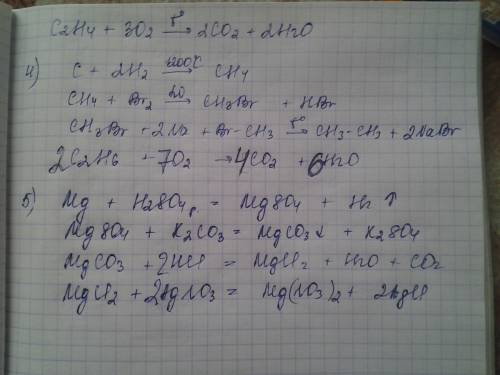 C2H4 + 3O2 t° → 2CO2 + 2H2O
4) C + 2H2 500°C → CH4
CH4 + Br2 20 → CH3Br + HBr
CH3Br + 2Na + Br-CH3 t° → CH3-CH3 + 2NaBr
2C2H6 + 7O2 → 4CO2 + 6H2O
5) Mg + H2SO4 р. = MgSO4 + H2 ↑
MgSO4 + K2CO3 = MgCO3↓ + K2SO4
MgCO3 + 2HCl = MgCl2 + H2O + CO2
MgCl2 + 2AgNO3 = Mg(NO3)2 + 2AgCl